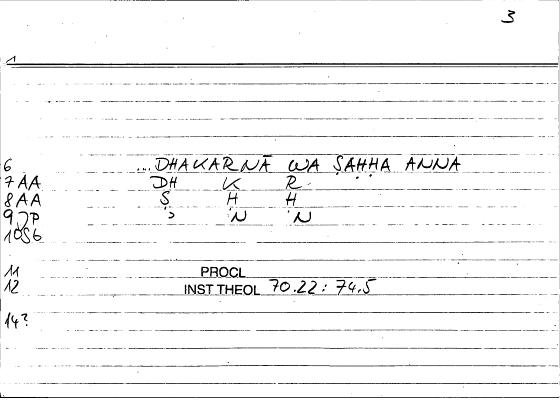 3
1
6 ...DHAKARNĀ WA ṢAḤḤA ANNA
7 AA DH K R
8 AA Ṣ Ḥ Ḥ
9 JP ʾ N N
10 S6
11 PROCL
12 INST THEOL 70.22: 74.5
14?